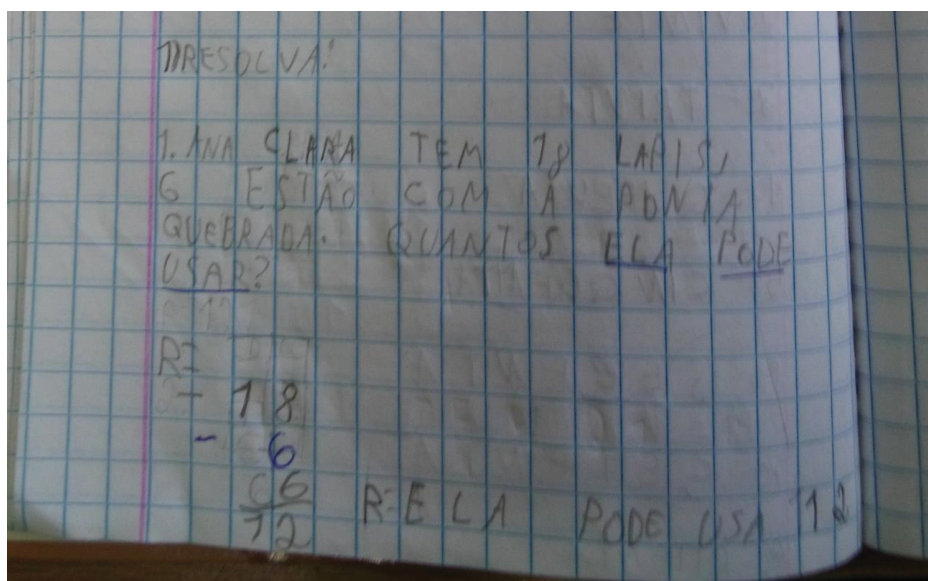 1) RESOLVA:
1. ANA CLARA TEM 18 LAPIS,
6 ESTÃO COM A PONTA
QUEBRADA. QUANTOS ELA PODE
USAR?
R=
- 18
- 6
06
12 R=ELA PODE USA 12